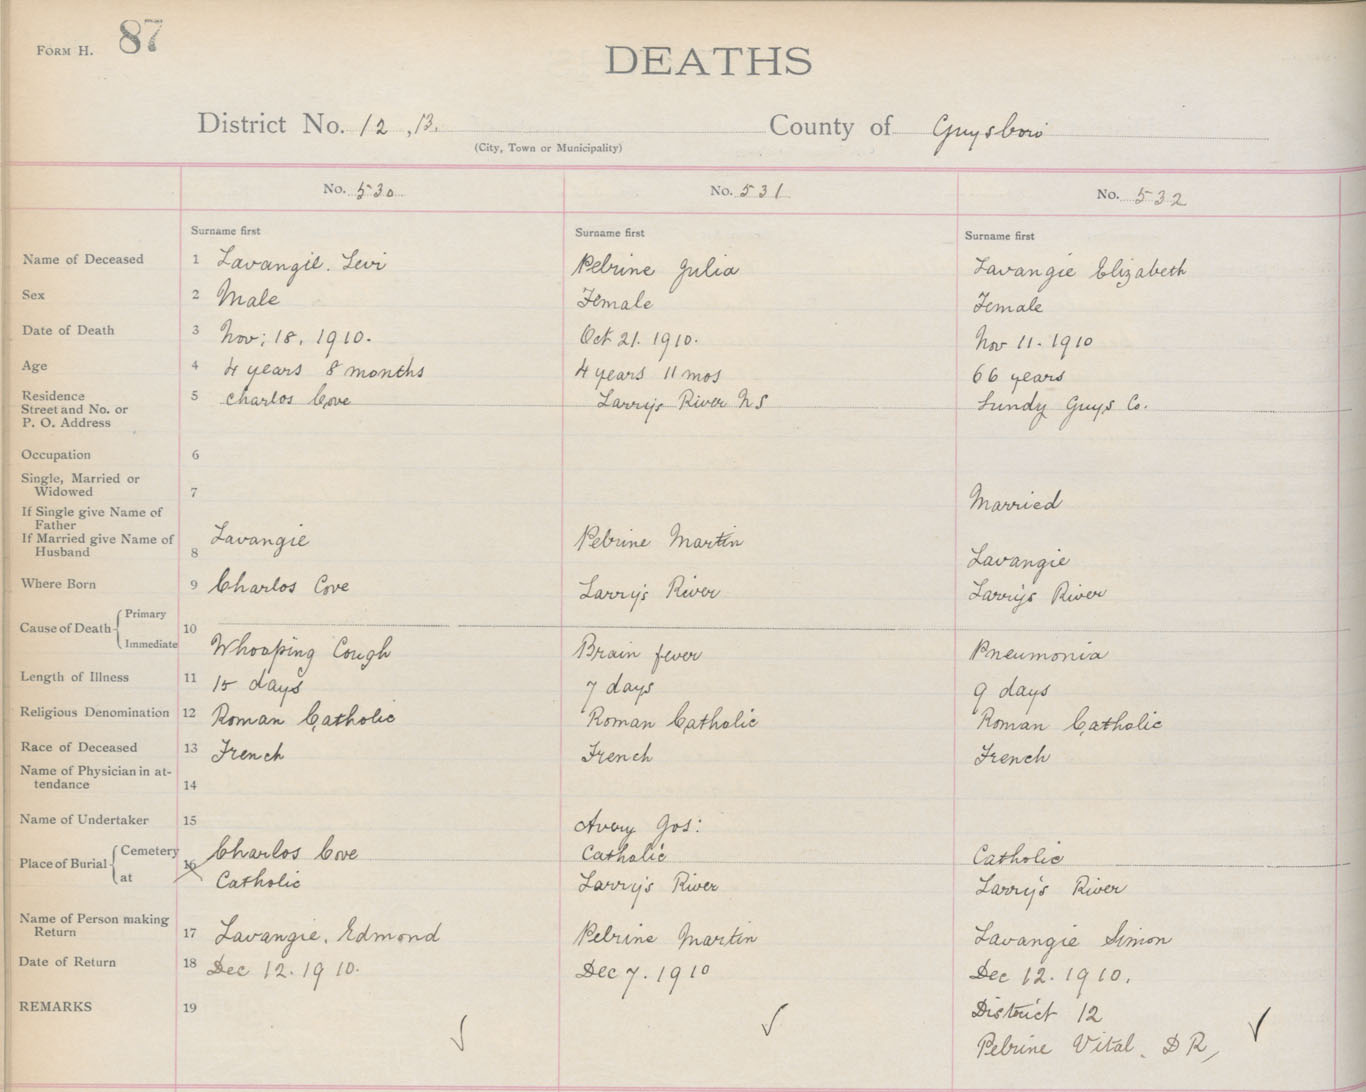 FORM H. 87
DEATHS
District No. 12, 13. County of Guysboro
(City, Town or Municipality)
No. 530 No. 531 No. 532
Surname first Surname first Surname first
Name of Deceased 1 Lavangie. Levi Pelrine Julia Lavangie Elizabeth
Sex 2 Male Female Female
Date of Death 3 Nov; 18, 1910. Oct 21. 1910. Nov 11. 1910
Age 4 4 years 8 months 4 years 11 mos 66 years
Residence
Street and No. or
P. O. Address
5 Charlos Cove Larry's River NS Lundy Guys Co.
Occupation 6
Single, Married or
Widowed 7 Married
If Single give Name of
Father
If Married give Name of
Husband
8 Lavangie Pelrine Martin Lavangie
Where Born 9 Charlos Cove Larry's River Larry's River
Cause of Death Primary
10
Immediate Whooping Cough Brain fever Pneumonia
Length of Illness 11 15 days 7 days 9 days
Religious Denomination 12 Roman Catholic Roman Catholic Roman Catholic
Race of Deceased 13 French French French
Name of Physician in at-
tendance 14
Name of Undertaker 15 Avery Jos:
Place of Burial Cemetery 16 Charlos Cove Catholic Catholic
at Catholic Larry's River Larry's River
Name of Person making
Return 17 Lavangie. Edmond Pelrine Martin Lavangie Simon
Date of Return 18 Dec 12. 1910. Dec 7. 1910 Dec 12. 1910.
REMARKS 19 District 12
Pelrine Vital. D R,